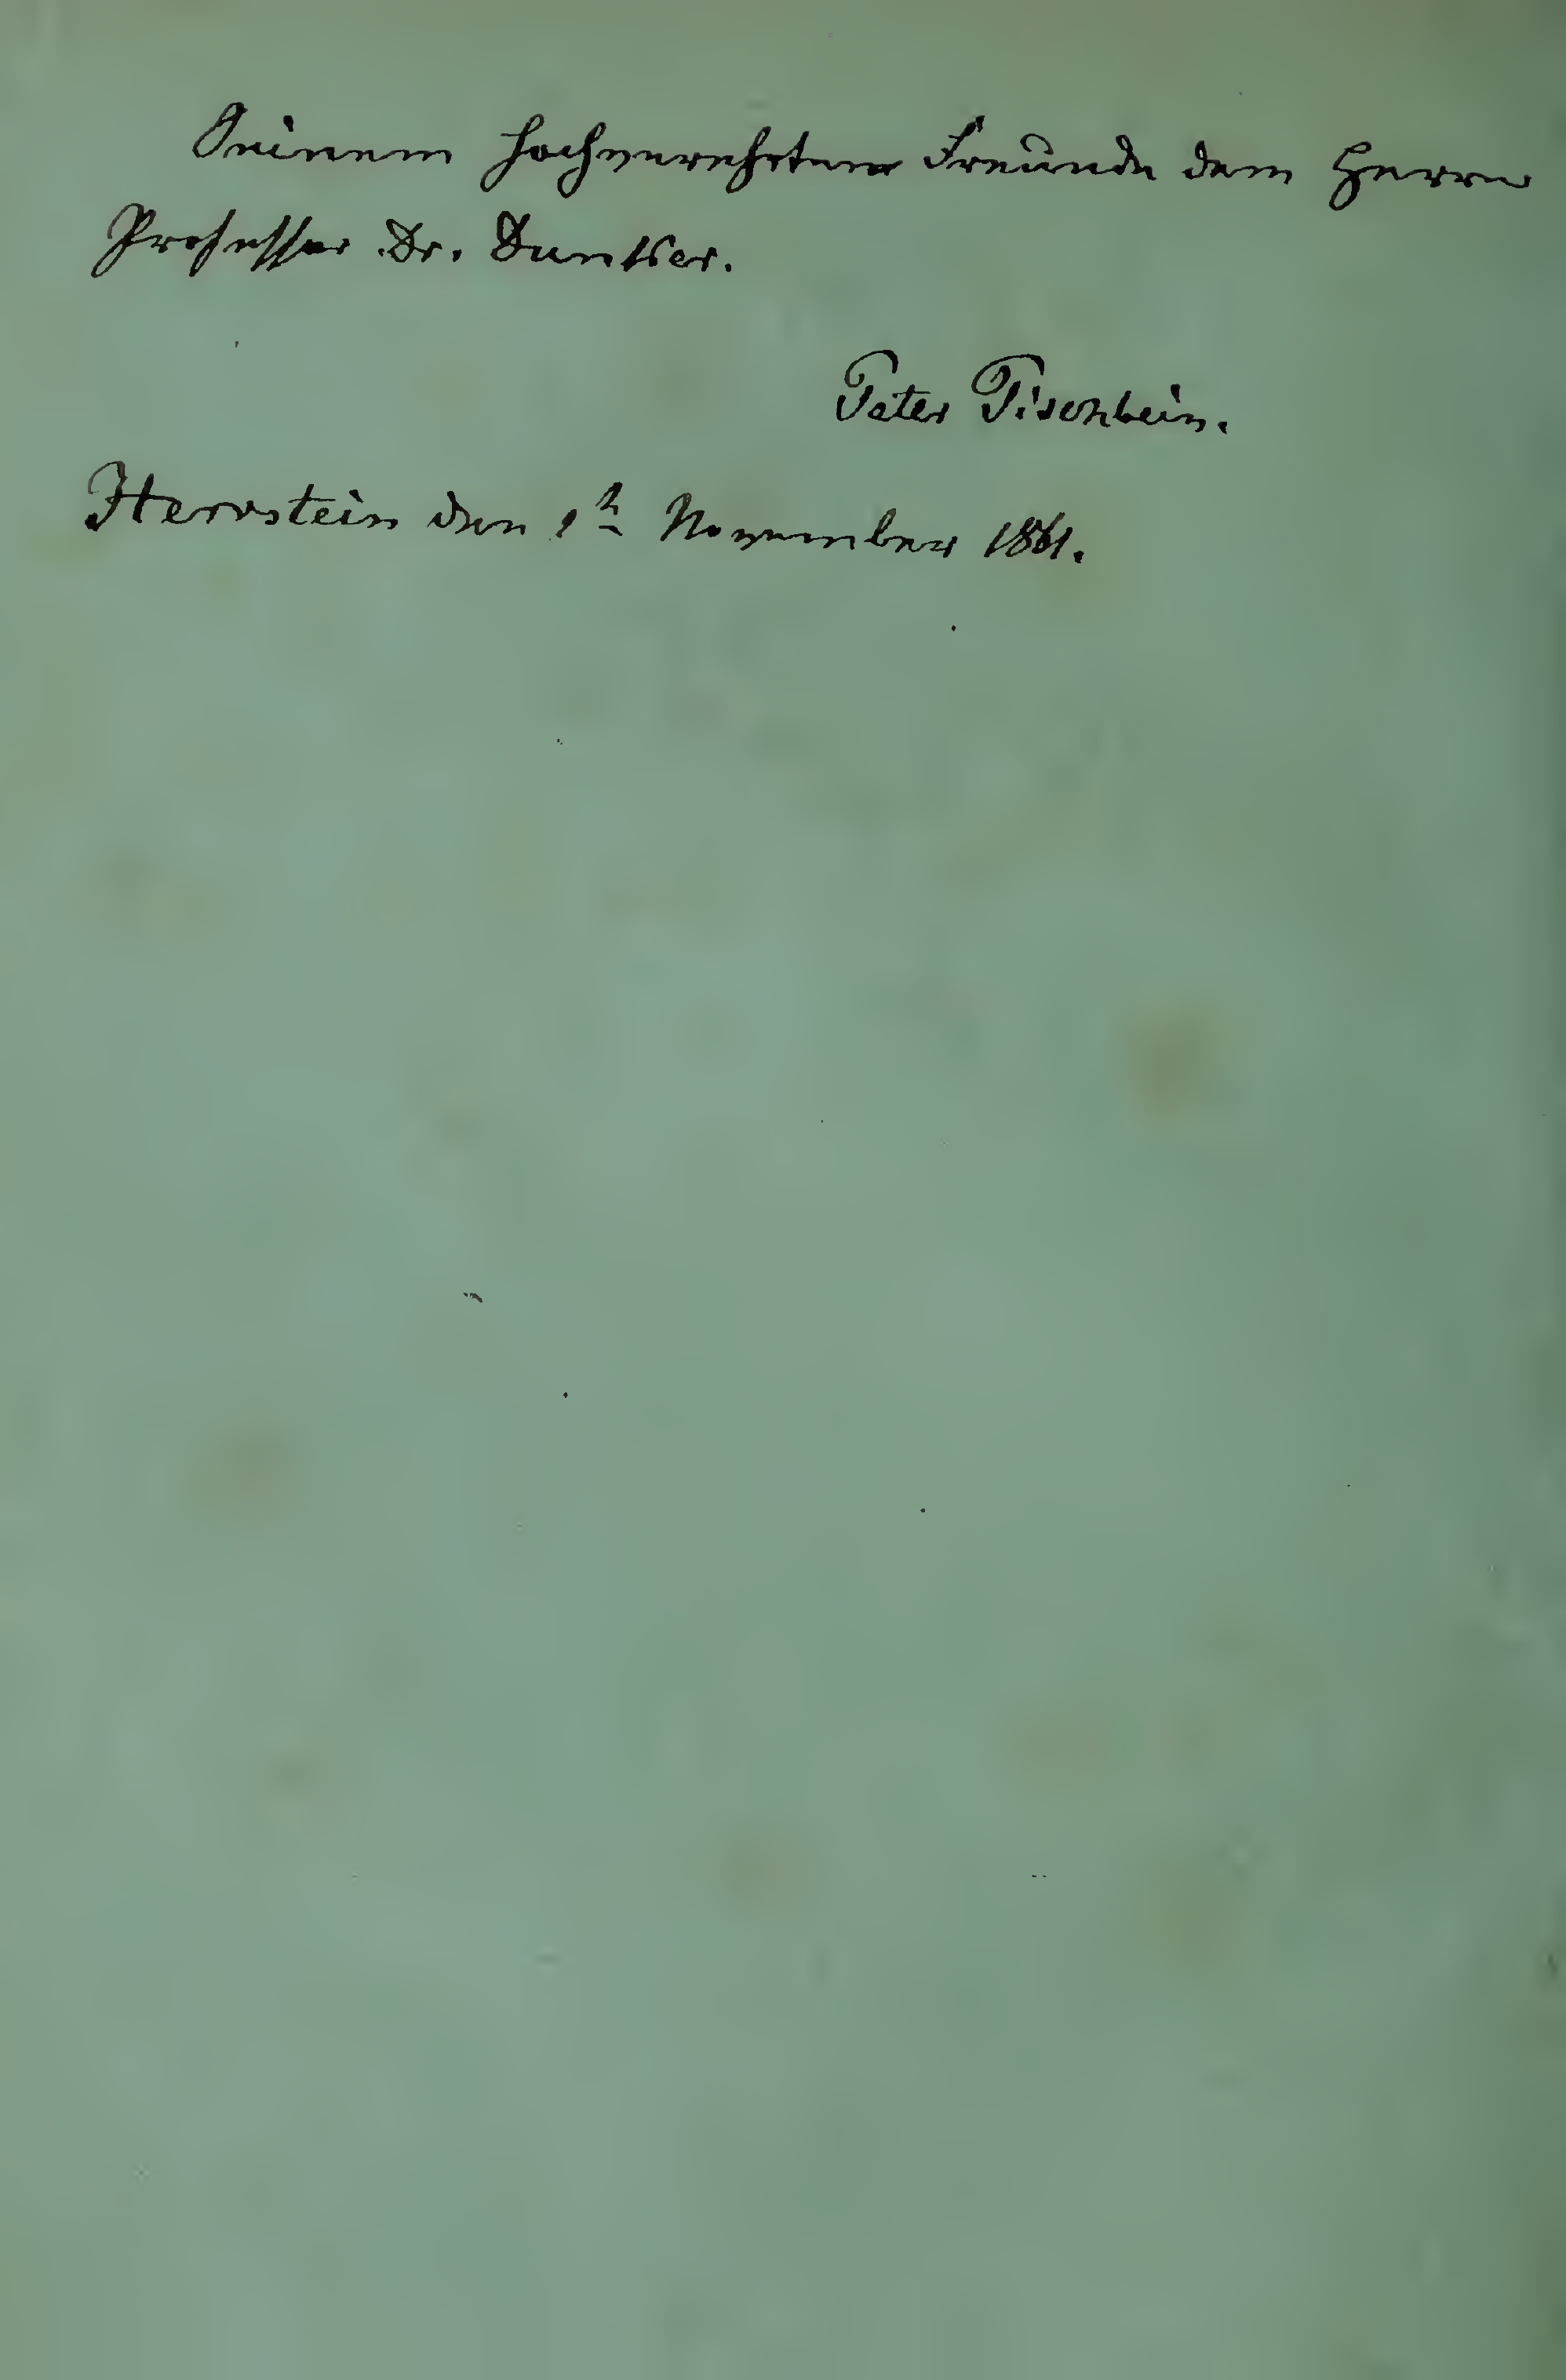 Seinem hochverehrten Freunde dem Herrn
Professor Dr. Dunker.
Peter Tischbein.
Herrstein den 1n November 1861.